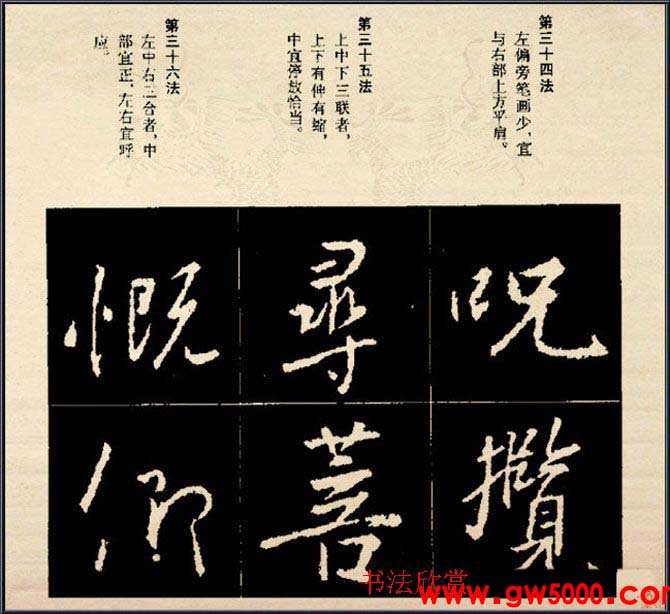 第三十四法
左偏旁笔画少,宜
与右部上方平肩。
第三十五法
上中下三联者,
上下有伸有缩,
中宜停放恰当。
第三十六法
左中右三合者,中
部宜正,左右宜呼
应。
呪
攬
尋
菩
慨
仰
书法欣赏
www.gw5000.com